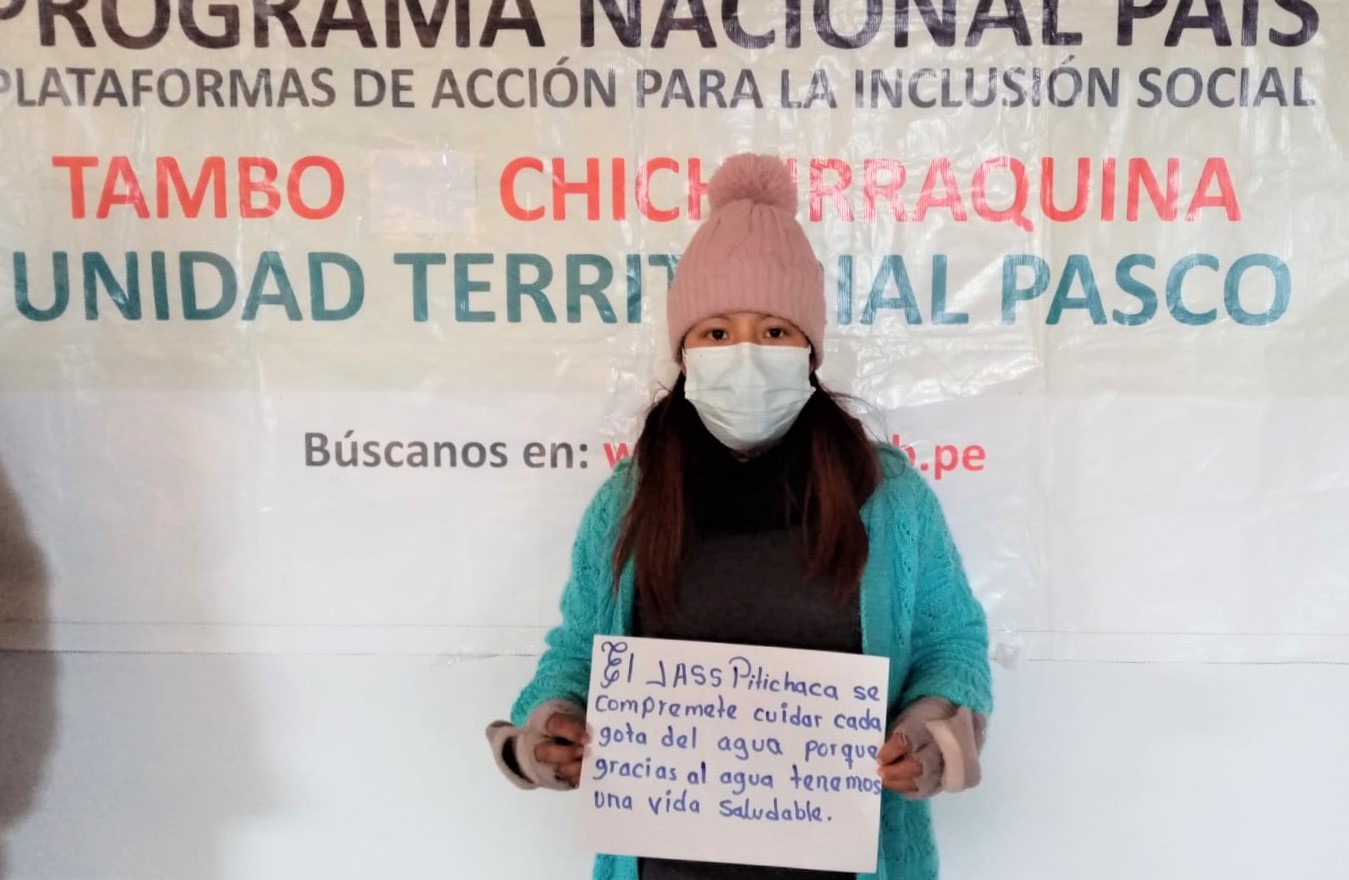 PROGRAMA NACIONAL PAIS
PLATAFORMAS DE ACCIÓN PARA LA INCLUSIÓN SOCIAL
TAMBO
UNIDAD PASCO
Búscanos en:
El JASS Pitichaca se
compremete cuidar cada
gota del agua porque
gracias al agua tenemos
una vida saludable.